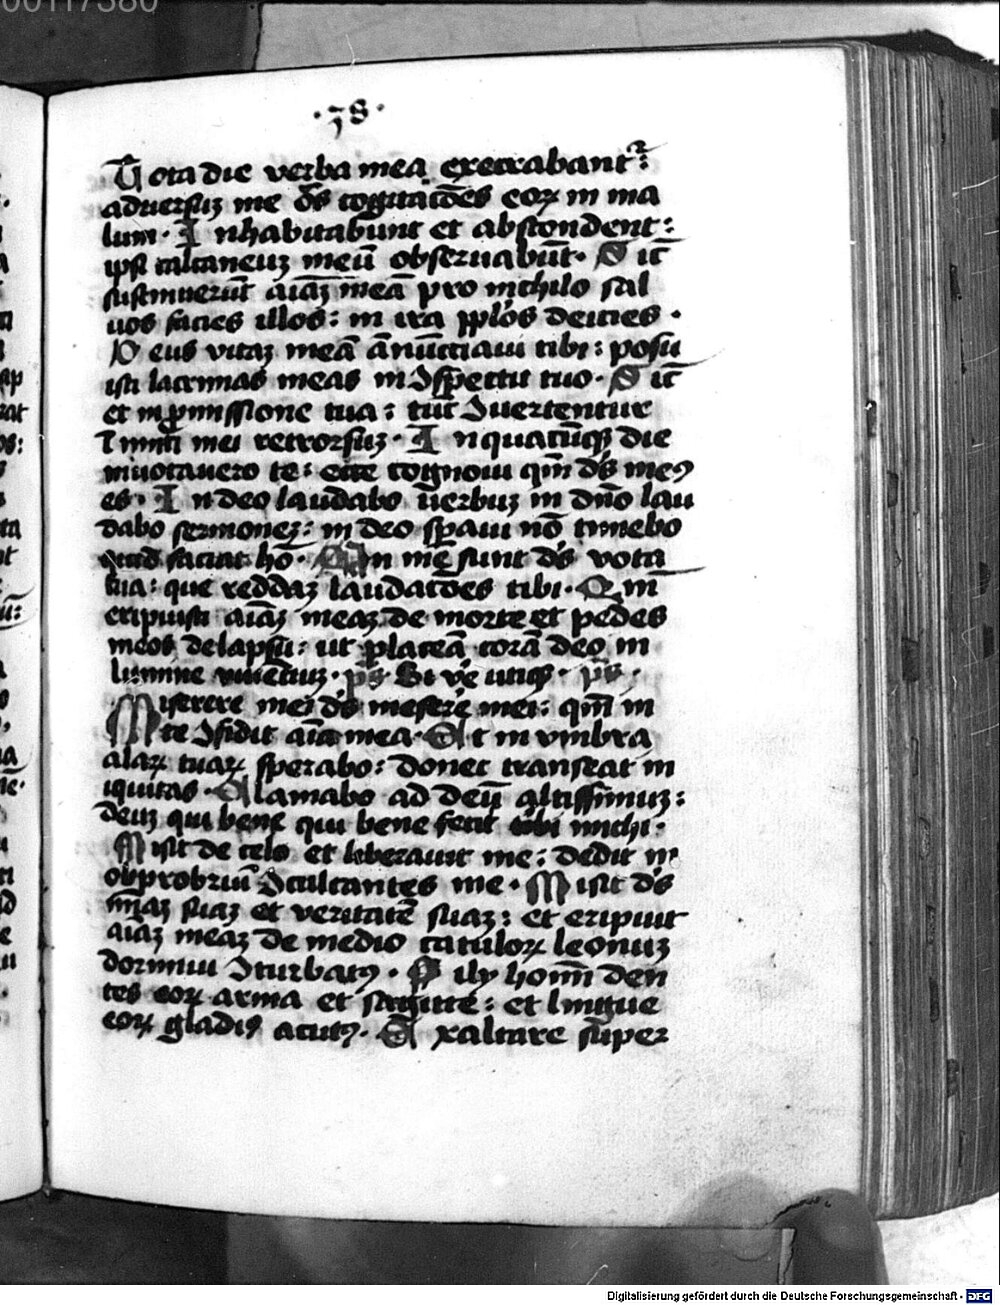 00117380
·78·
Tota die verba mea execrabantᷣ:
adversuʒ me oēs cogitacōes eoꝝ in ma
lum· Inhabitabunt et abscondent:
ipsi calcaneuʒ meū observabūt· Sicͭ
sustinuerūt aīaʒ meā pro nichilo sal
vos facies illos: in ira pplōs deicies·
Deus vitaʒ meā ānūctiavi tibi: posu
isti lacrimas meas in ɔspectu tuo· Sicͭ
et in ꝓmissione tua: tūc ɔvertentur
Inimici mei retrorsuʒ· In quacūqꝫ die
invocavero te: ecce cognovi qm̄ ds̄ meꝰ
es· In deo laudabo verbuʒ in dn̄o lau
dabo sermoneʒ: in deo sꝑavi nō timebo
quid faciat hō· In me sunt ds̄ vota
tua: que reddaʒ laudacōes tibi· Qm̄
eripuisti aīaʒ meaʒ de morte et pedes
meos de lapsu: ut placeā corā deo in
lumine vivenciuʒ· ps̄
Miserere mei ds̄ miserere mei: qm̄ in
te ɔfidit aīa mea· Et in umbra
alaꝝ tuaꝝ sperabo: donec transeat in
iquitas· Clamabo ad deū altissimuʒ:
deuʒ qui bene qui bene fecit tibi michi·
Misit de celo et liberavit me: dedit in
obprobriū ɔculcantes me· Misit ds̄
mīaʒ suaʒ et veritatē suaʒ: et eripuit
aīaʒ meaʒ de medio catuloꝝ leonuʒ
dormivi ɔturbatꝰ· Filij homī den
tes eoꝝ arma et sagitte: et lingue
eoꝝ gladiꝰ acutꝰ· Exaltare super
Digitalisierung gefördert durch die Deutsche Forschungsgemeinschaft - DFG